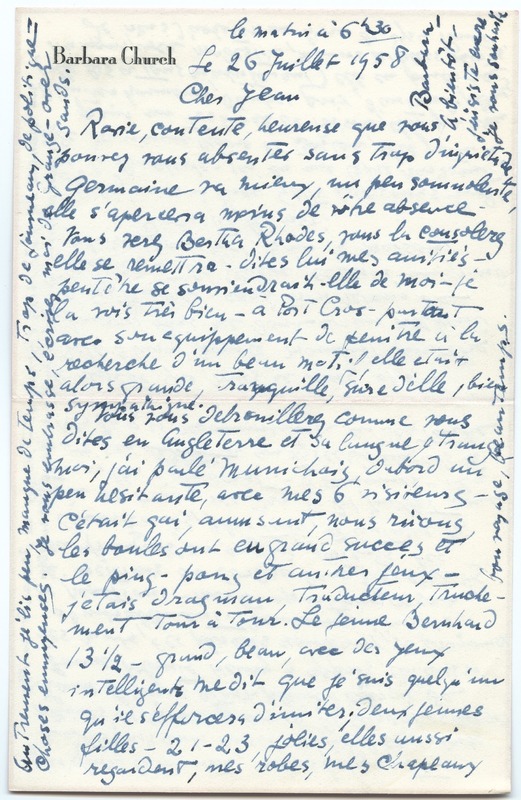 le matin à 6h30
Barbara Church
Le 26 Juillet 1958
Cher Jean
Ravie, contente, heureuse que vous
pouvez vous absenter sans trop d'inquiétude
Germaine va mieux, un peu somnolente,
elle s'apercevra moins de votre absence -
Vous verez Bertha Rhodes, vous la consolerez
elle se remettra - dites lui mes amitiés -
peutêtre se souviendrait-elle de moi - je
la vois très bien - à Port Cros - partant
avec son equippement de peintre à la
recherche d'un beau motif, elle etait
alors grande, tranquille, sûre d'elle, bien
sympathique.
Vous vous debrouillerez comme vous
dites en Angleterre et sa langue étrange
moi, j'ai parlé Munichois, d'abord un
peu hesitante, avec mes 6 visiteurs -
c'était gai, amusant, nous rivons,
les boules ont eu grand succès et
le ping-pong et autres jeux -
j'etais dragman, traducteur, truche-
ment tour à tour. Le jeune Bernhard
13 1/2 - grand, beau, avec des yeux
intelligents me dit que je suis quelqu'un
qu'il s'efforcera d'imiter, deux jeunes
filles - 21-23, jolies, elles aussi
regardent, mes robes, mes chapeaux
autrement je lis peu, manque de temps, trop de journaux, de politique -
choses ennuyeuses. Je vous embrasse, écrivez moi de
Sandi.
bon voyage, beau temps.
je vous embrasse
à bientôt -
Barbara -